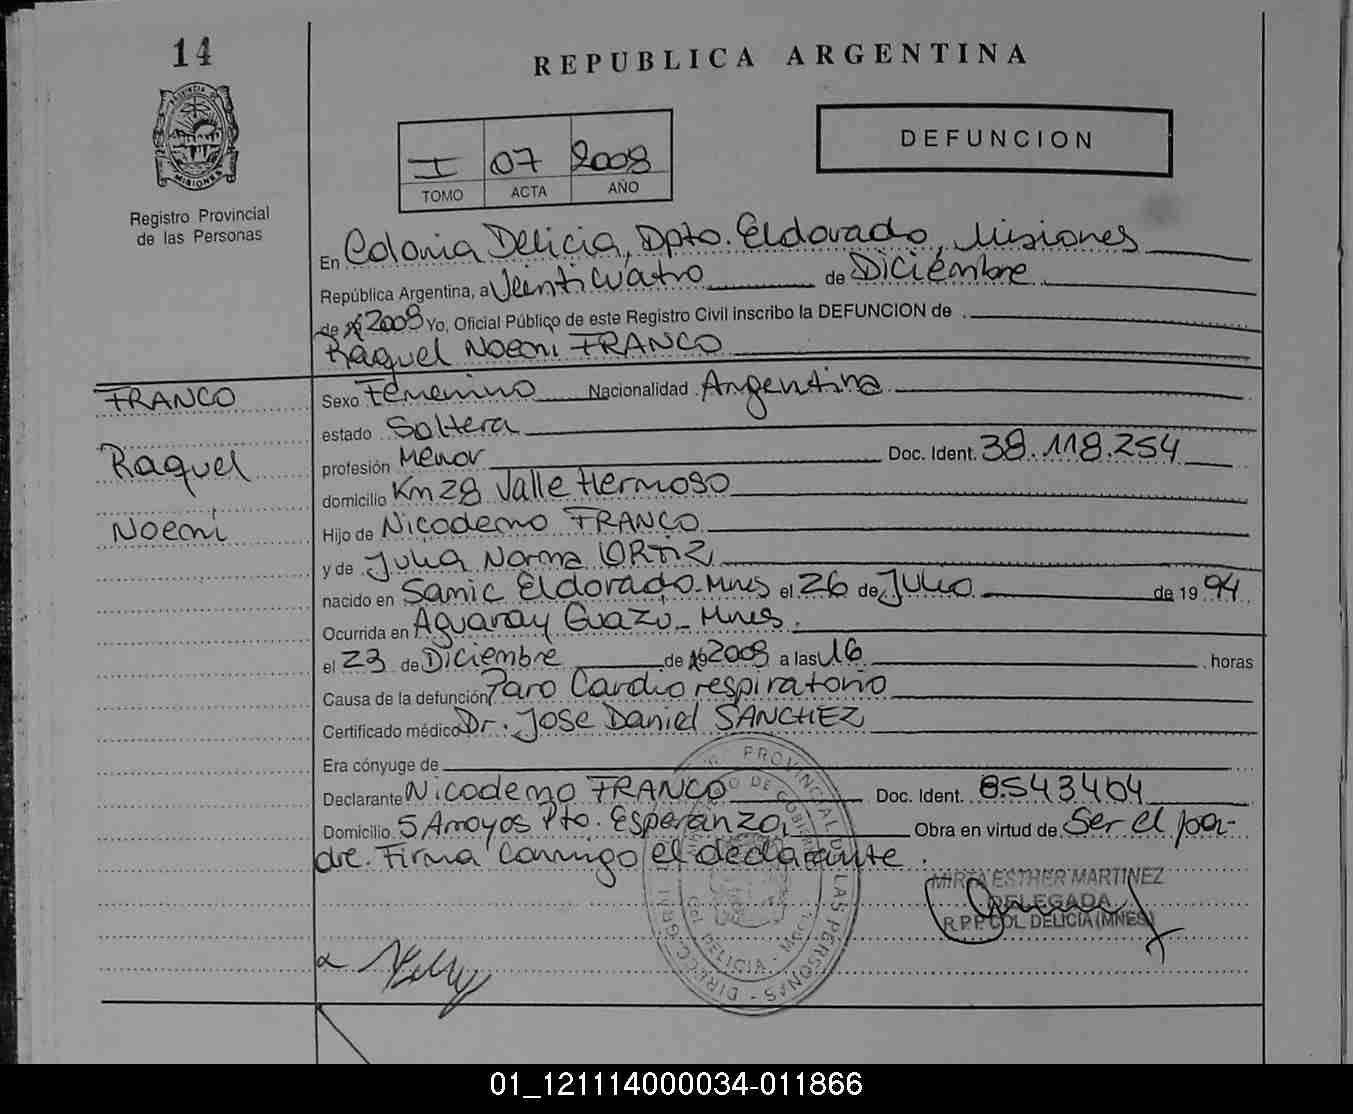 14
REPUBLICA ARGENTINA
PROVINCIA DE
MISIONES
Registro Provincial
de las Personas
I 07 2008
TOMO ACTA AÑO
DEFUNCION
En Colonia Delicia, Dpto. Eldorado, Misiones
República Argentina, a Veinticuatro de Diciembre
de 2008 Yo, Oficial Público de este Registro Civil inscribo la DEFUNCION de
Raquel Noemi FRANCO
FRANCO
Raquel
Noemi
Sexo Femenino Nacionalidad Argentina
estado Soltera
profesión Menor Doc. Ident. 38.118.254
domicilio Km 28 Valle Hermoso
Hijo de Nicodemo FRANCO
y de Julia Norma ORTIZ
nacido en Samic Eldorado-Mnes el 26 de Julio de 1994
Ocurrida en Aguaray Guazu - Mnes.
el 23 de Diciembre de 2008 a las 16 horas
Causa de la defunción Paro Cardio respiratorio
Certificado médico Dr. Jose Daniel SANCHEZ
Era cónyuge de
Declarante Nicodemo FRANCO Doc. Ident. 8543404
Domicilio 5 Arroyos Pto. Esperanza, Obra en virtud de Ser el pa-
dre. Firma conmigo el declarante.
MIRTA ESTHER MARTINEZ
DELEGADA
R.P.P. COL. DELICIA (MNES)
PROVINCIAL DE LAS PERSONAS - DIRECC. GRAL.
COL. DELICIA - MNES
01_121114000034-011866